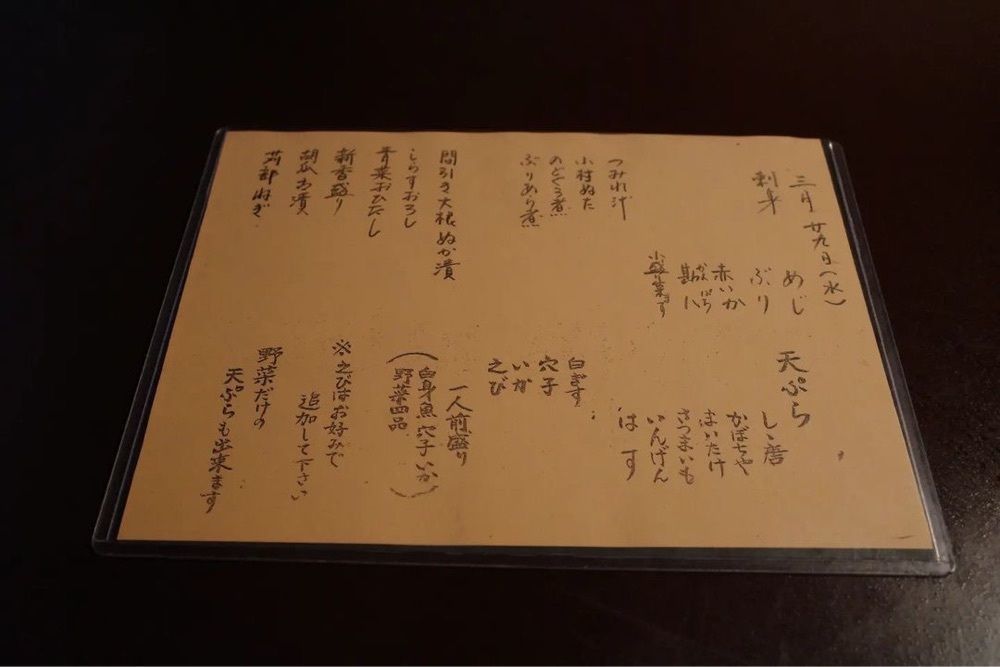 三月廿九日(水)
刺身
めじ
ぶり
赤いか
かんぱち
勘八
小盛り菜ます
つみれ汁
小村ぬた
のどぐろ煮
ぶりあら煮
間引き大根ぬか漬
しらすおろし
青菜おひたし
新香盛り
胡瓜古漬
天ぷら
しゝ唐
かぼちゃ
まいたけ
さつまいも
いんげん
はす
白ぎす
穴子
いか
えび
一人前盛り
(白身魚 穴子 いか
野菜四品)
※えびはお好みで
追加して下さい
野菜だけの
天ぷらも出来ます